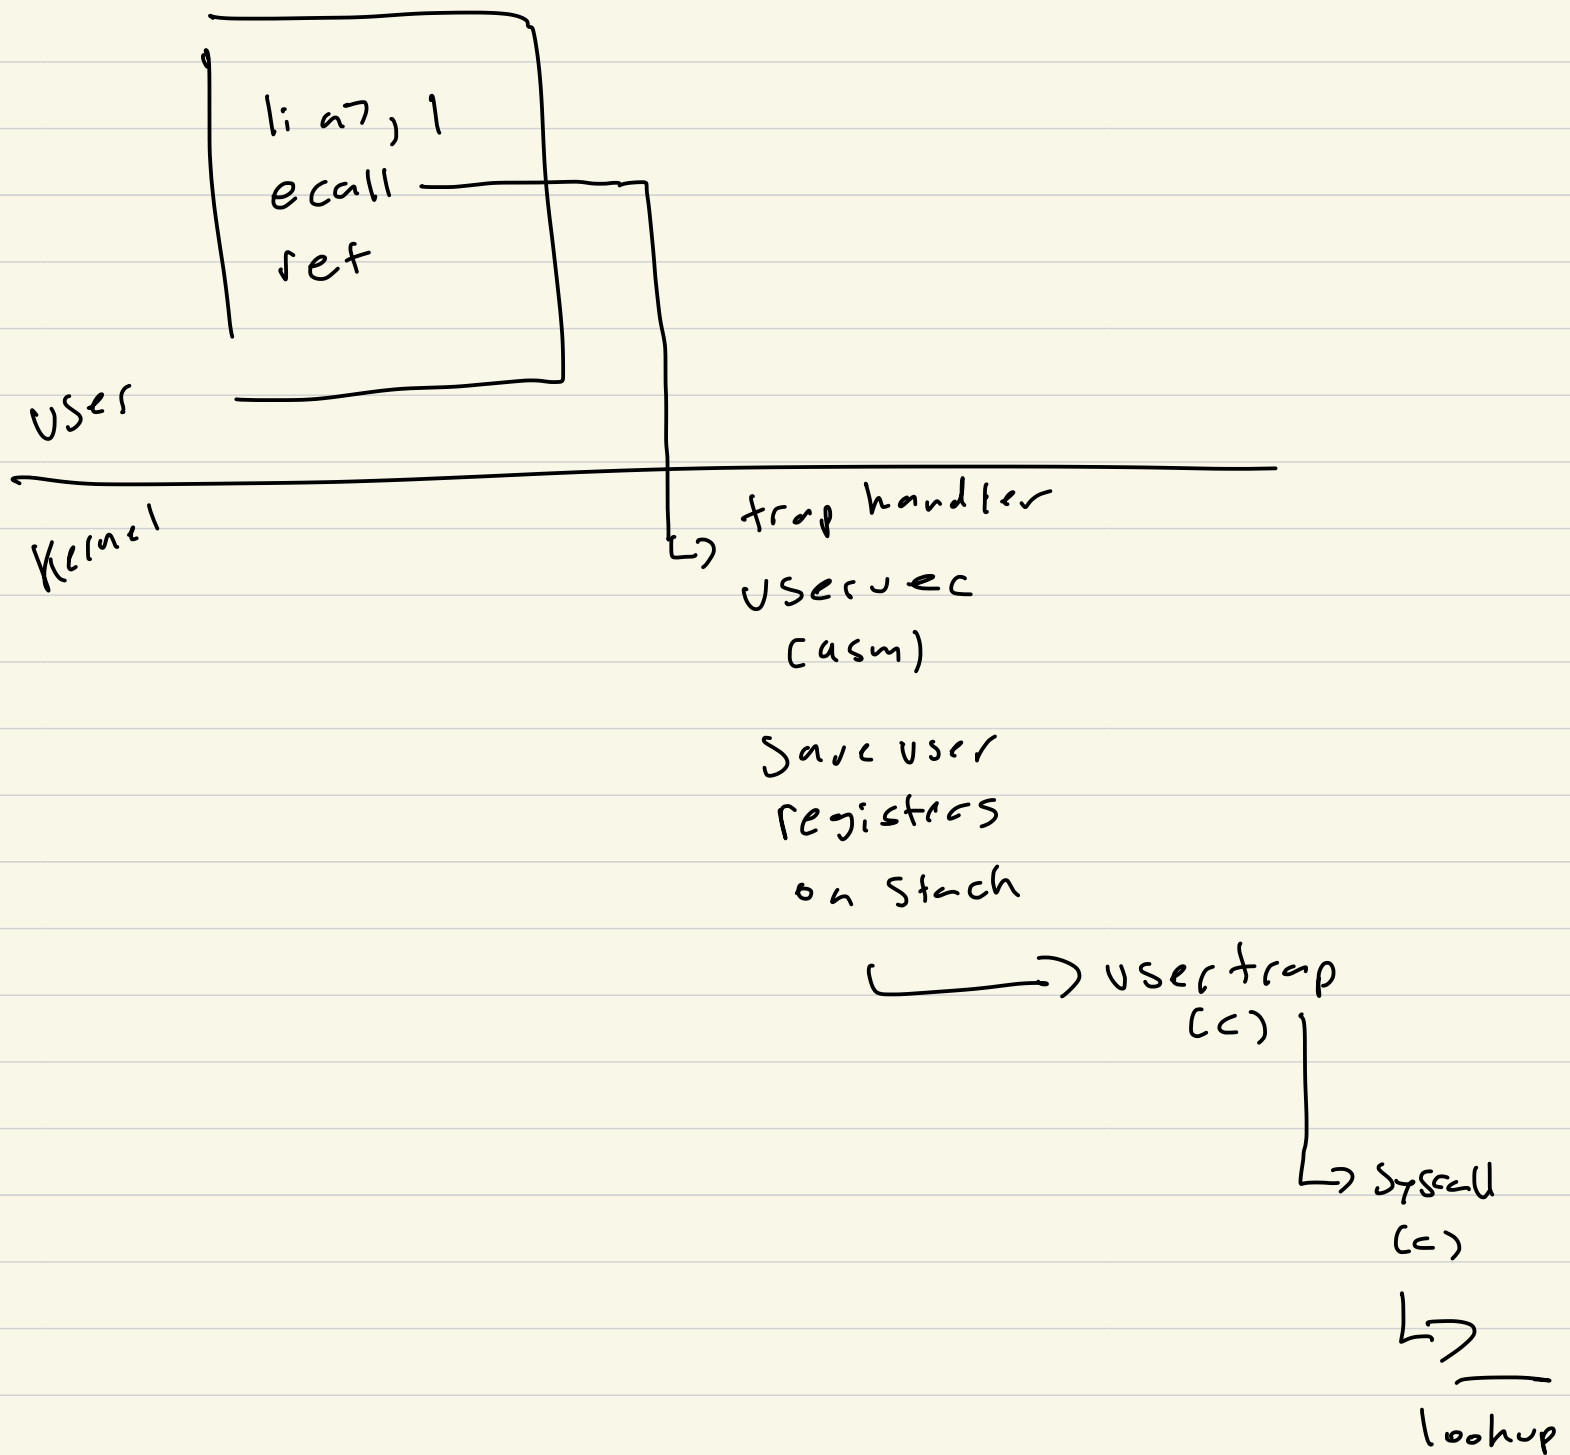 li a7, 1
ecall
ret
user
Kernel
trap handler
uservec
(asm)
Save user
registers
on stack
usertrap
(c)
syscall
(c)
lookup